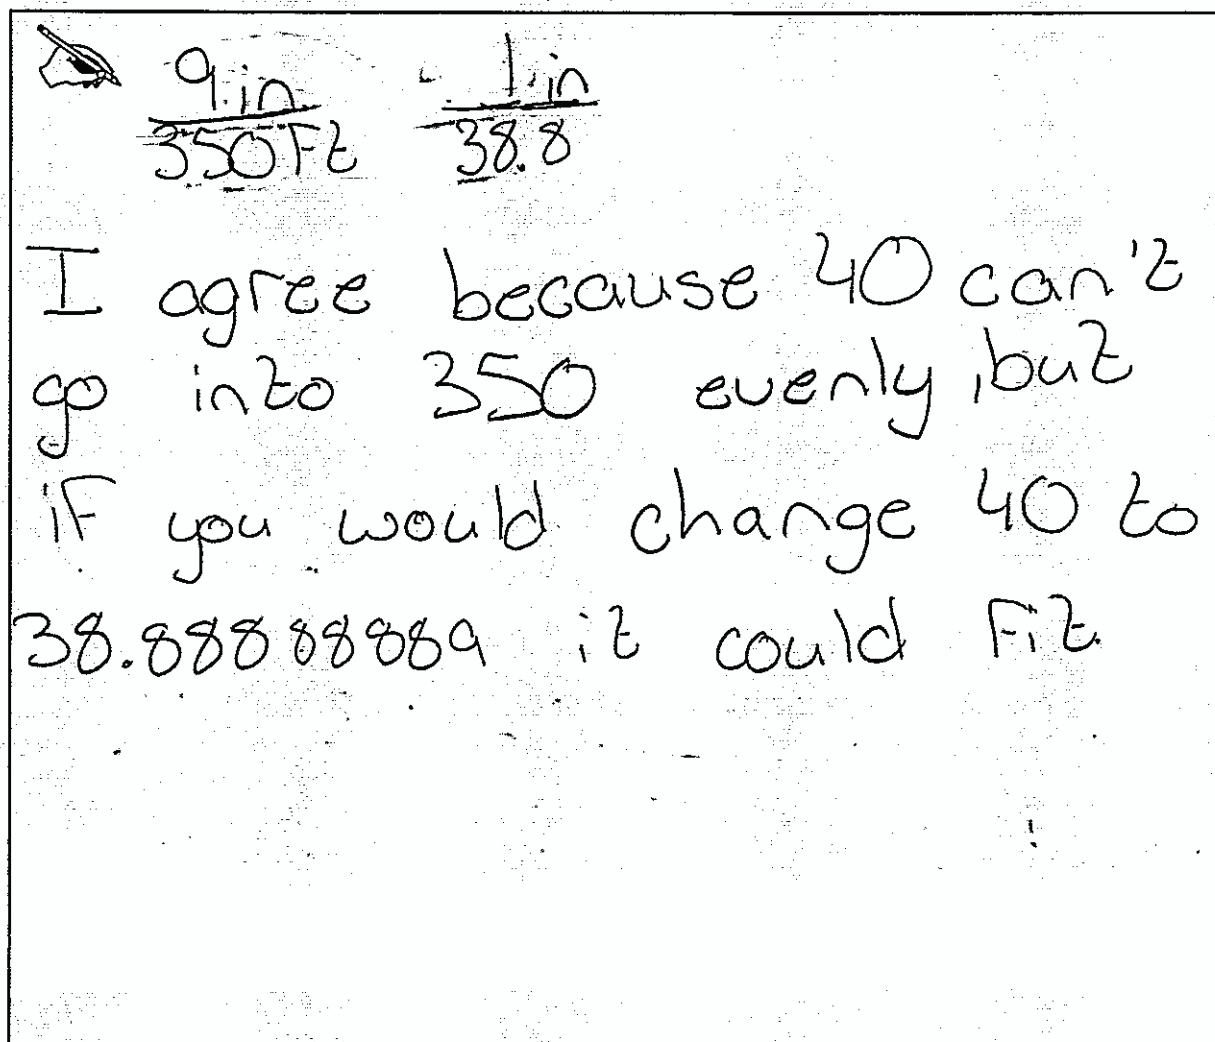 9 in 1 in
350 Ft 38.8
I agree because 40 can't
go into 350 evenly, but
if you would change 40 to
38.88888889 it could Fit.